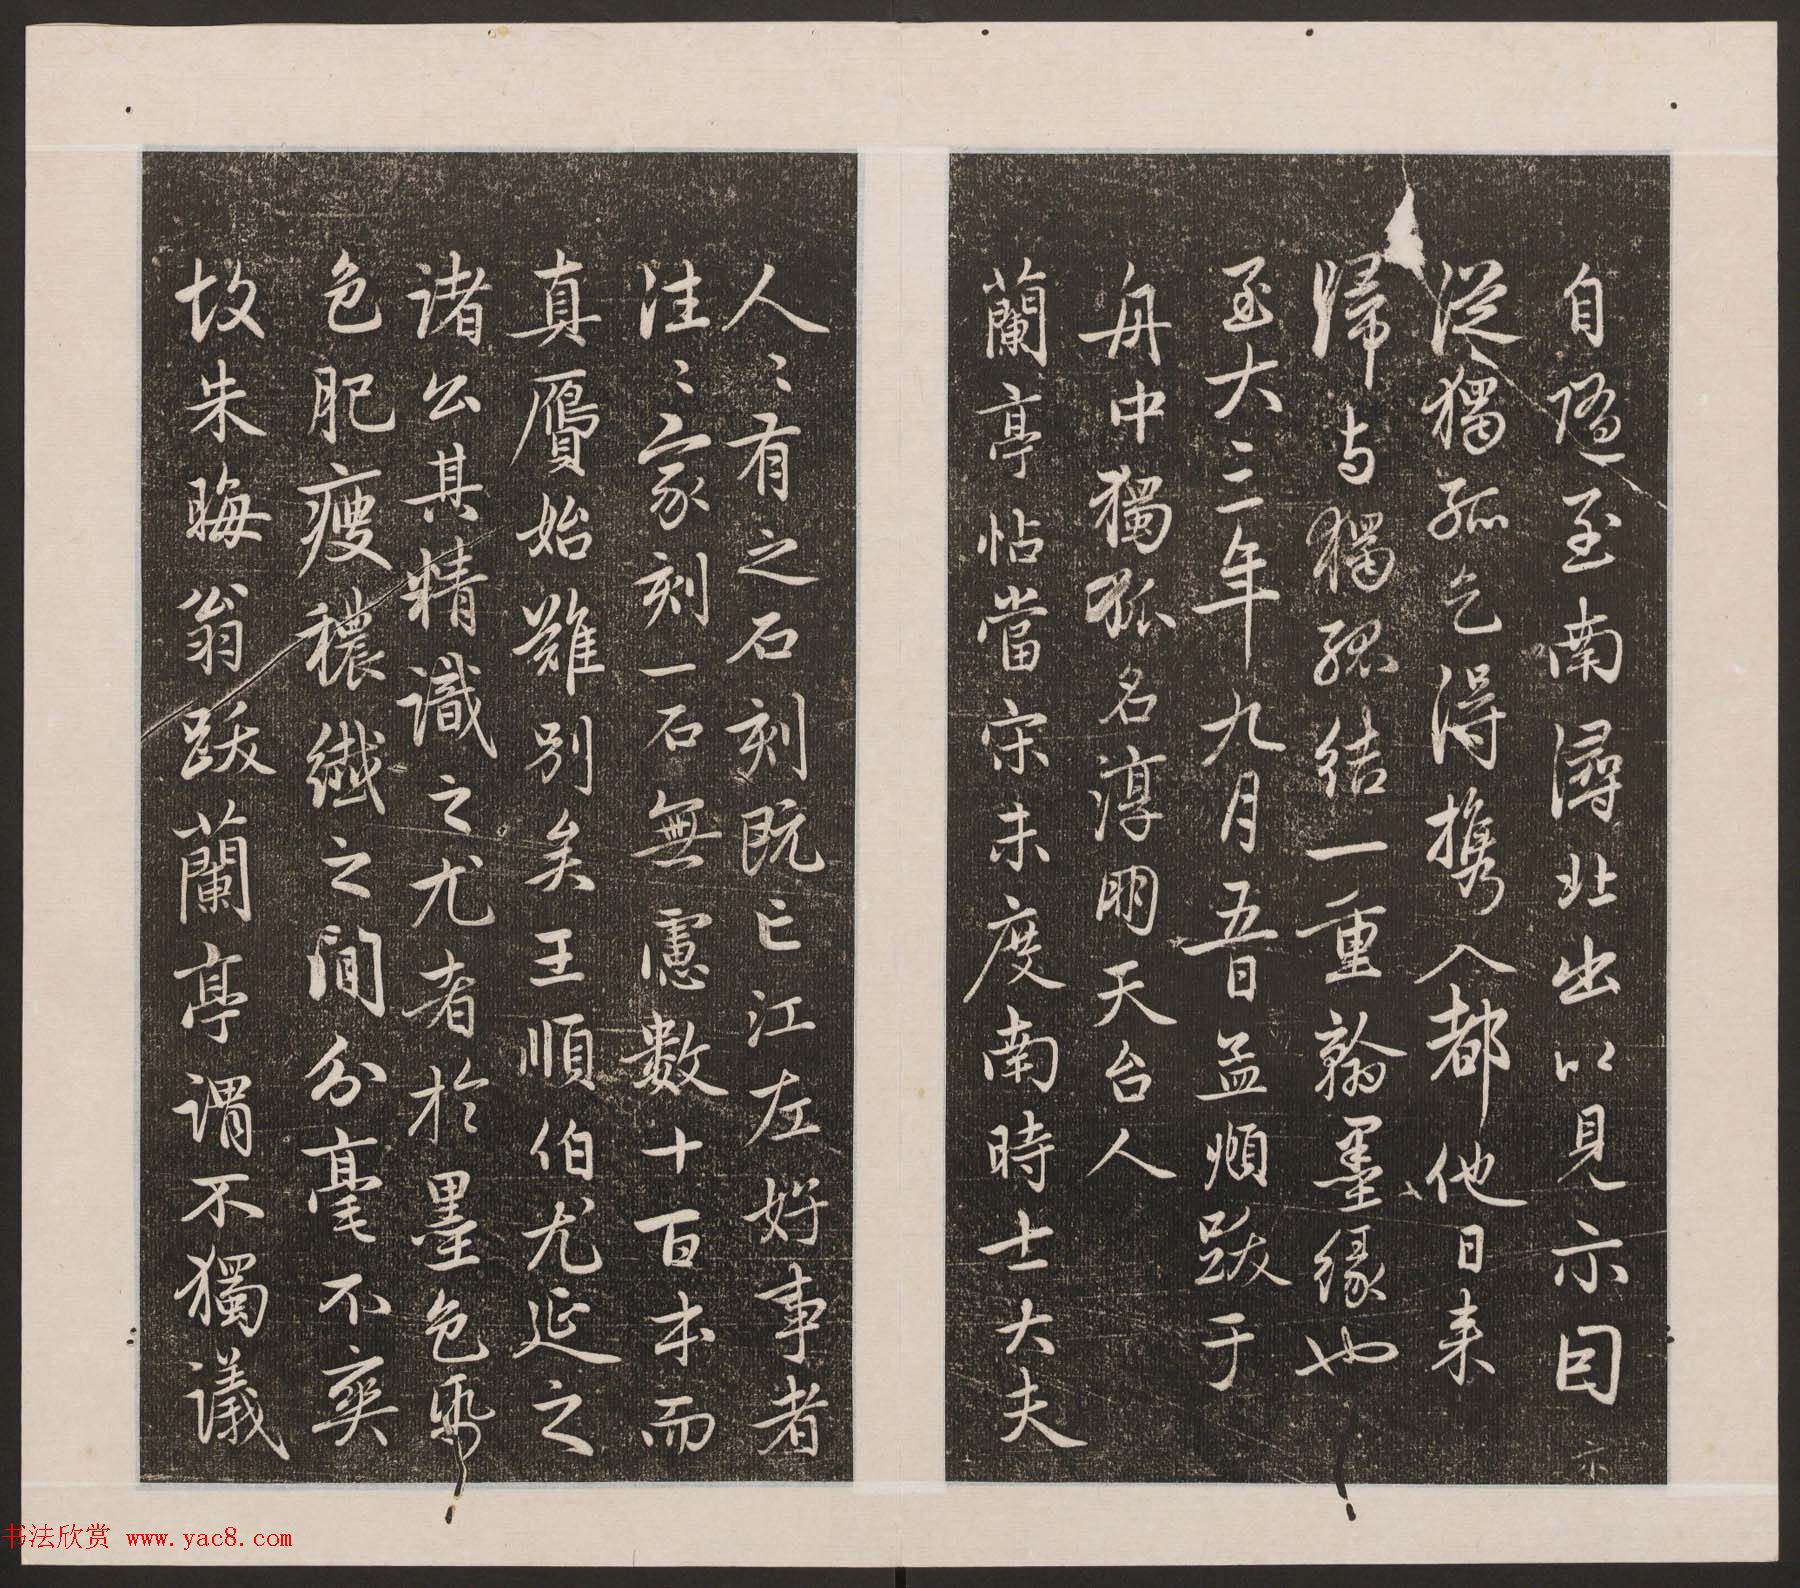 自隨至南潯北出以見示因
從獨孤乞得攜入都他日来
歸与獨孤結一重翰墨緣也
至大三年九月五日孟頫跋于
舟中獨孤名淳朋天台人
蘭亭帖當宋未度南時士大夫
人〻有之石刻既亡江左好事者
往〻家刻一石無慮數十百本而
真贗始難別矣王順伯尤延之
諸公其精識之尤者於墨色紙
色肥瘦穠纖之間分毫不爽
故朱晦翁跋蘭亭謂不獨議
书法欣赏 www.yac8.com